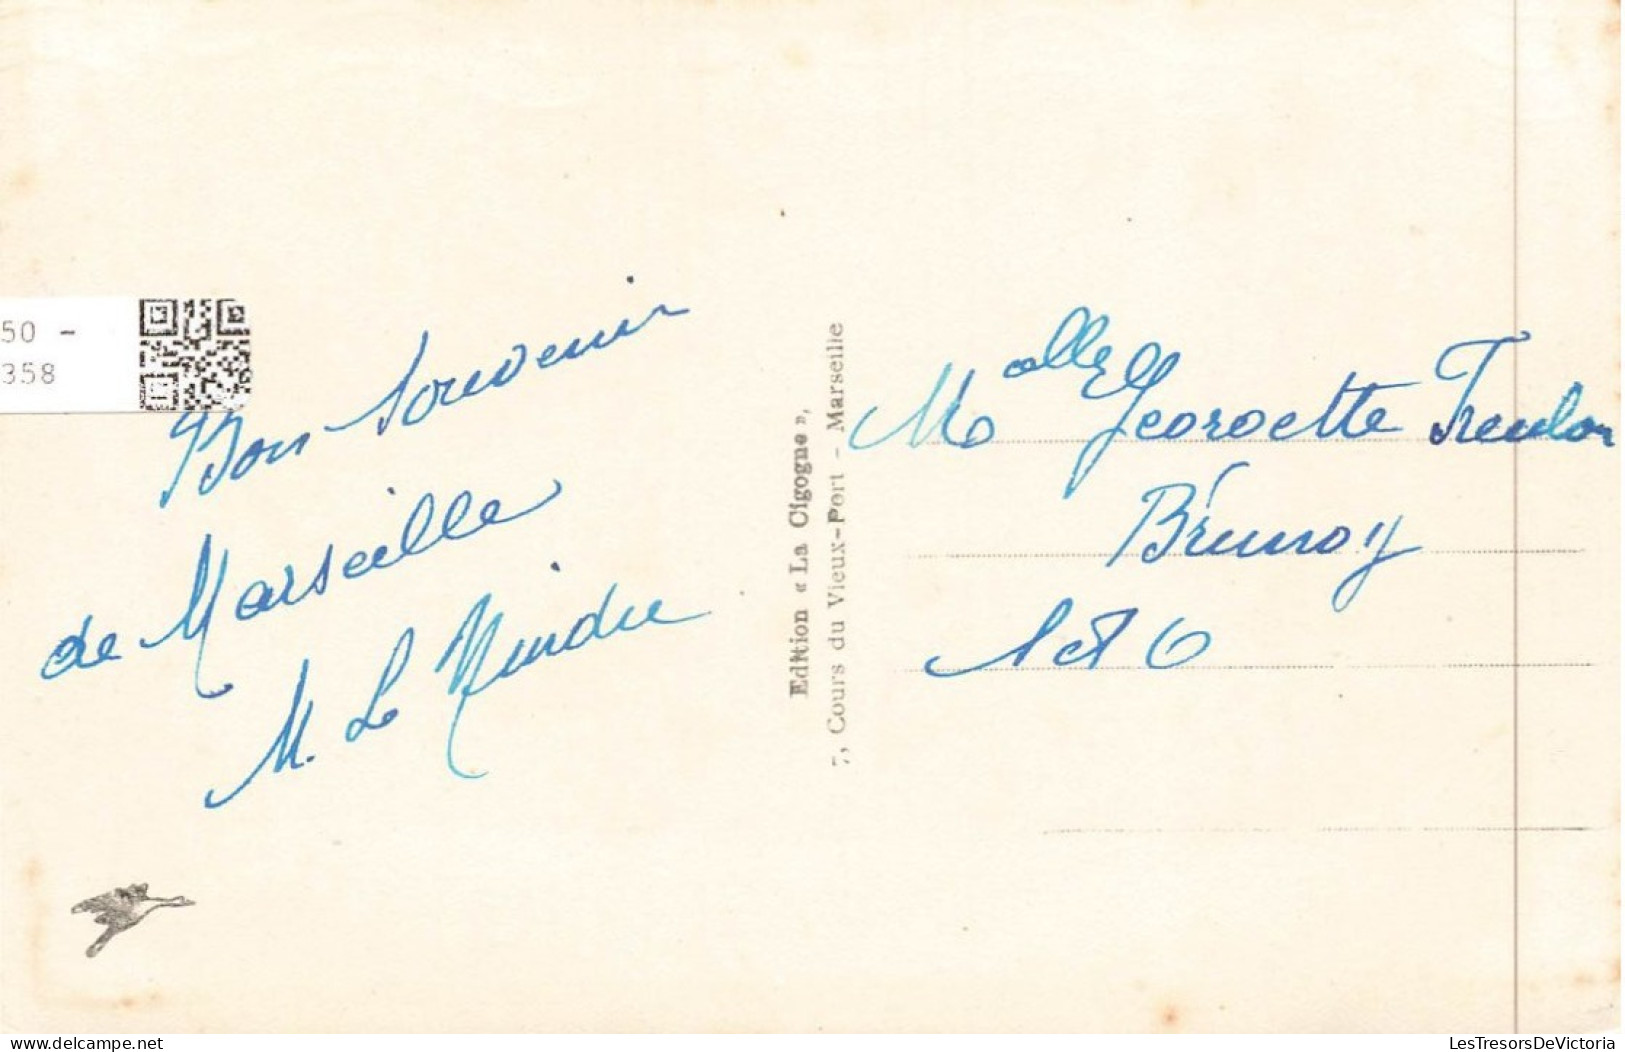 50 -
358
Bon souvenir
de Marseille
M. Le
Edition « La Cigogne »,
7, Cours du Vieux-Port - Marseille
Melle Georgette
Brunoy
S et O
LesTresorsDeVictoria